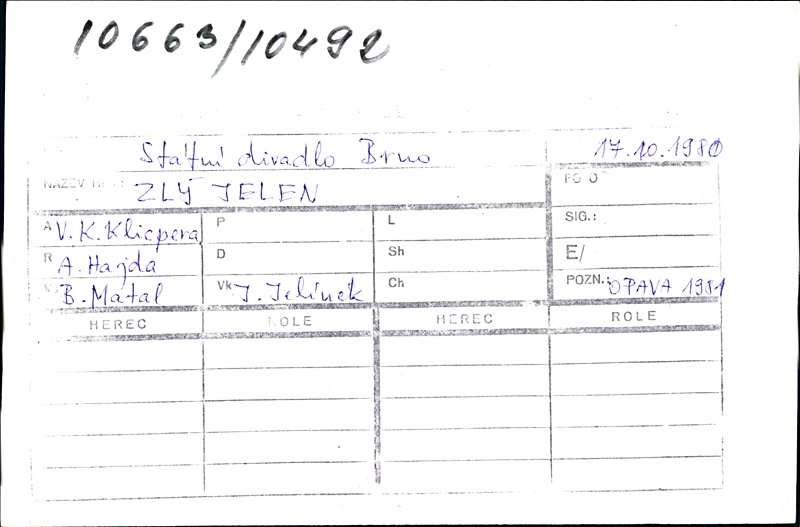 10663/10492
Státní divadlo Brno 17.10.1980
NÁZEV ZLÝ JELEN FOTO
A V. K. Klicpera P L SIG.:
R A. Hajda D Sh E/
B. Matal Vk J. Jelínek Ch POZN.: OPAVA 1981
HEREC ROLE HEREC ROLE